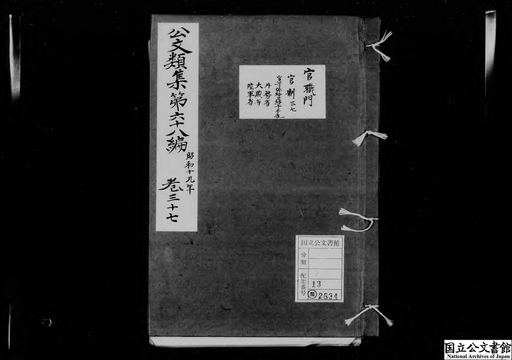 公文類集第六十八編
昭和十九年
巻三十七
官職門
官制三七
外務省
大蔵省
陸軍省
国立公文書館
分類
配架番号
13
2534
国立公文書館
National Archives of Japan